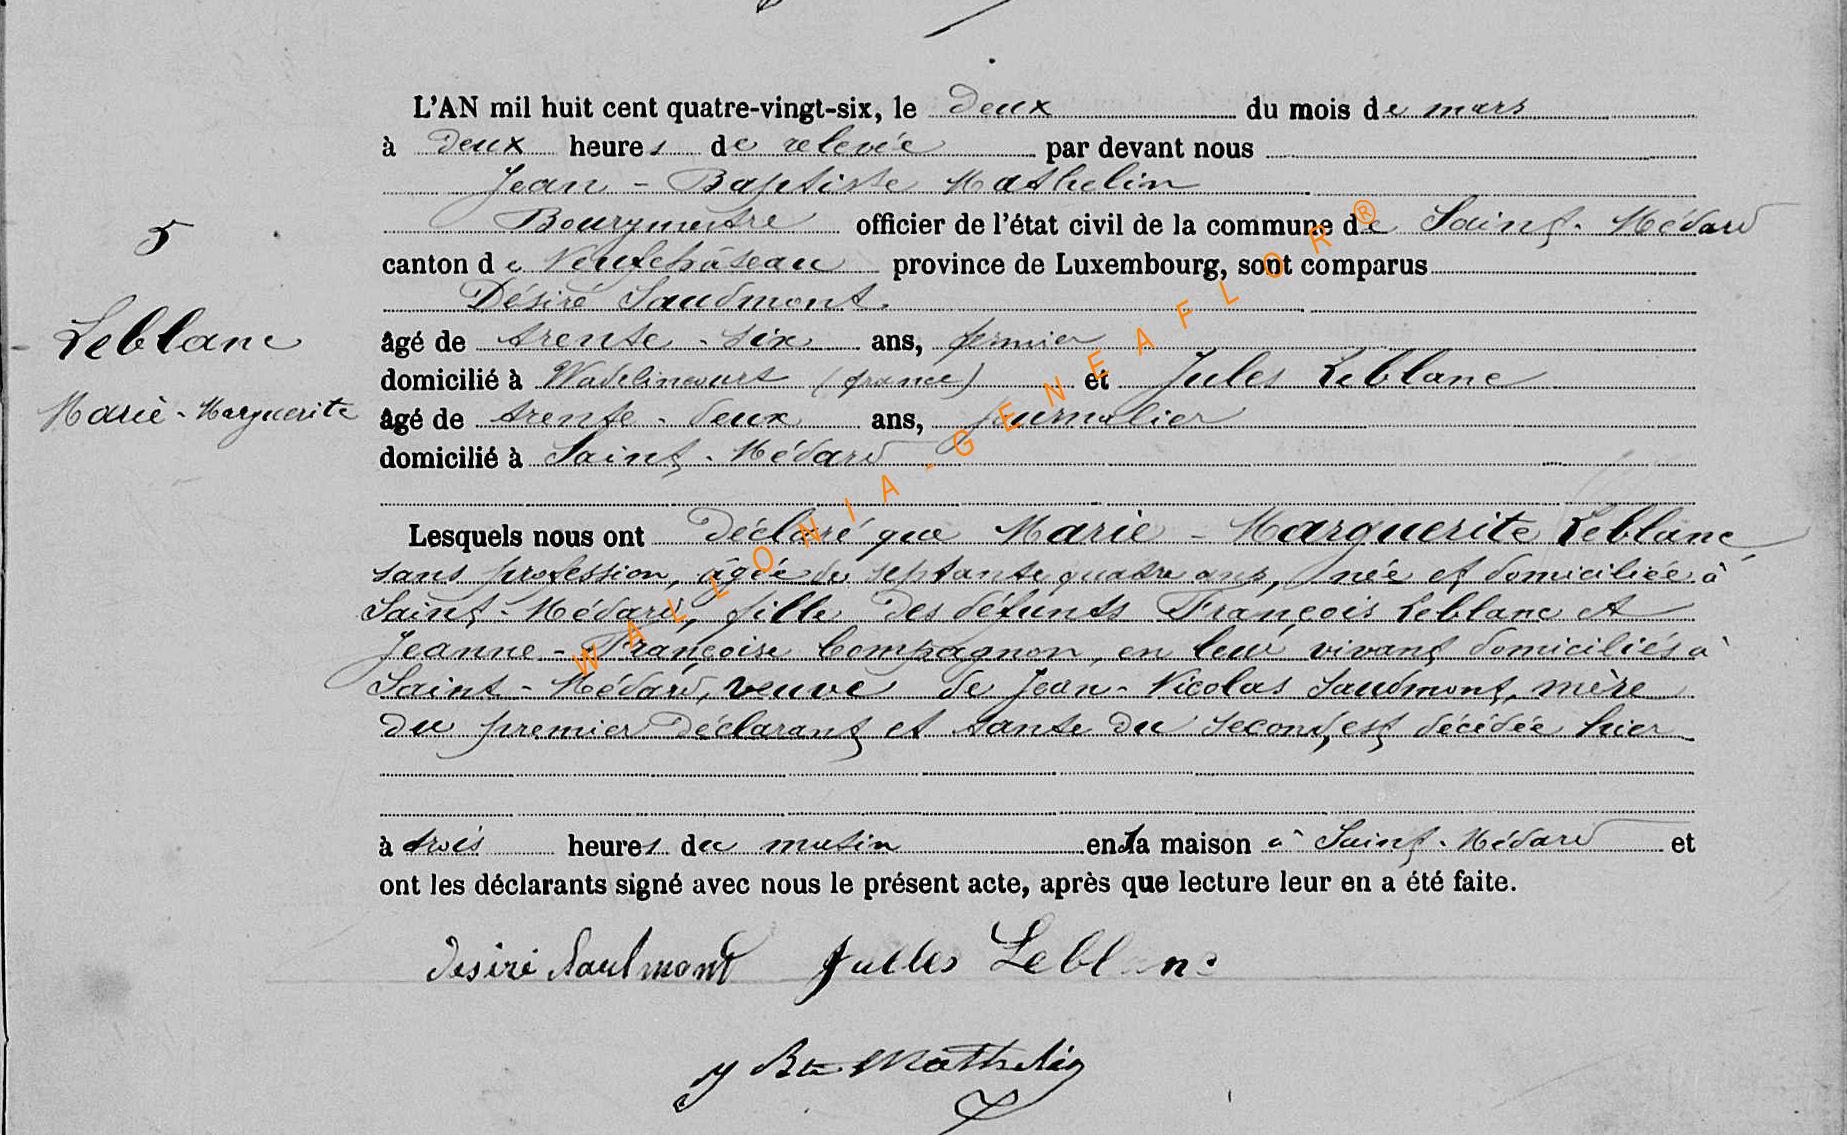 L'AN mil huit cent quatre-vingt-six, le deux du mois de mars
à deux heures de relevée par devant nous
Jean - Baptiste Mathelin
Bourgmestre officier de l'état civil de la commune de Saint-Médard
canton de Neufchâteau province de Luxembourg, sont comparus
Désiré Saudmont
âgé de trente-six ans, fermier
domicilié à Wadelincourt (france) et Jules Leblanc
âgé de trente-deux ans, journalier
domicilié à Saint-Médard
5
Leblanc
Marie-Marguerite
Lesquels nous ont déclaré que Marie-Marguerite Leblanc,
sans profession, âgée de septante quatre ans, née et domiciliée à
Saint-Médard, fille des défunts François Leblanc et
Jeanne-Françoise Compagnon, en leur vivant domiciliés à
Saint-Médard, veuve de Jean-Nicolas Saudmont, mère
du premier déclarant et tante du second, est décédée hier
à trois heures du matin en sa maison à Saint-Médard et
ont les déclarants signé avec nous le présent acte, après que lecture leur en a été faite.
Desiré Saudmont Jules Leblanc
J Bte Mathelin
WALLONIA-GENEAFLOR®